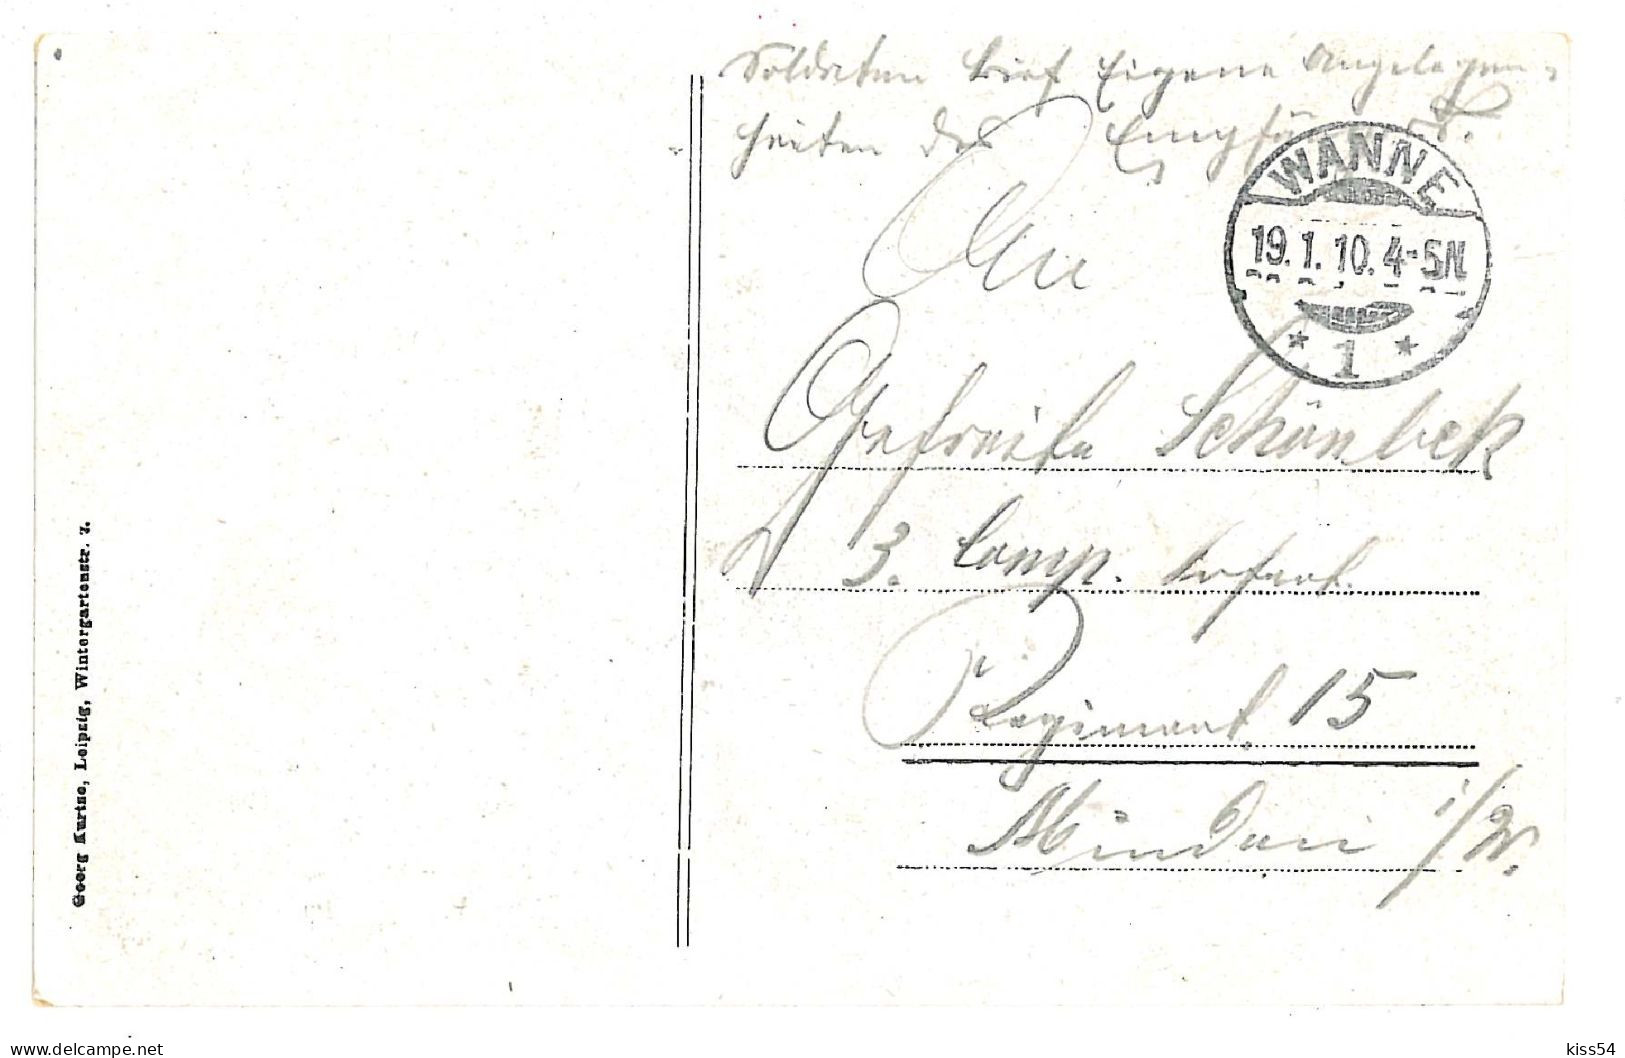 Soldaten brief Eigene Angelegen-
heiten des Empfängers.
WANNE
19.1.10.4-5N.
* 1 *
An
Gefreite Schönbek
3. Comp. Infant.
Regiment 15
Minden i/W.
Georg Kurtze, Leipzig, Wintergartenstr. 7.
delcampe.net
kiss54